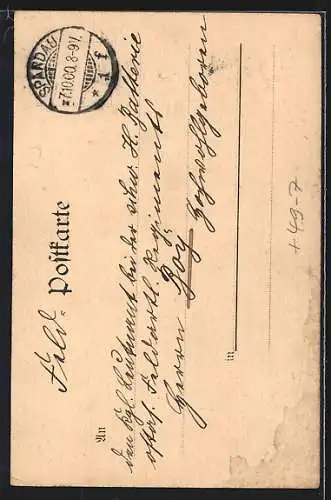 SPANDAU
* 1 f
7.10.00. 8-9V.
Feld-Postkarte
An
den Kgl. Leutnant bei der schw. H. Batterie
ostas. Feldartl. Regiments
Herrn Hochwohlgeboren
in
+49-7